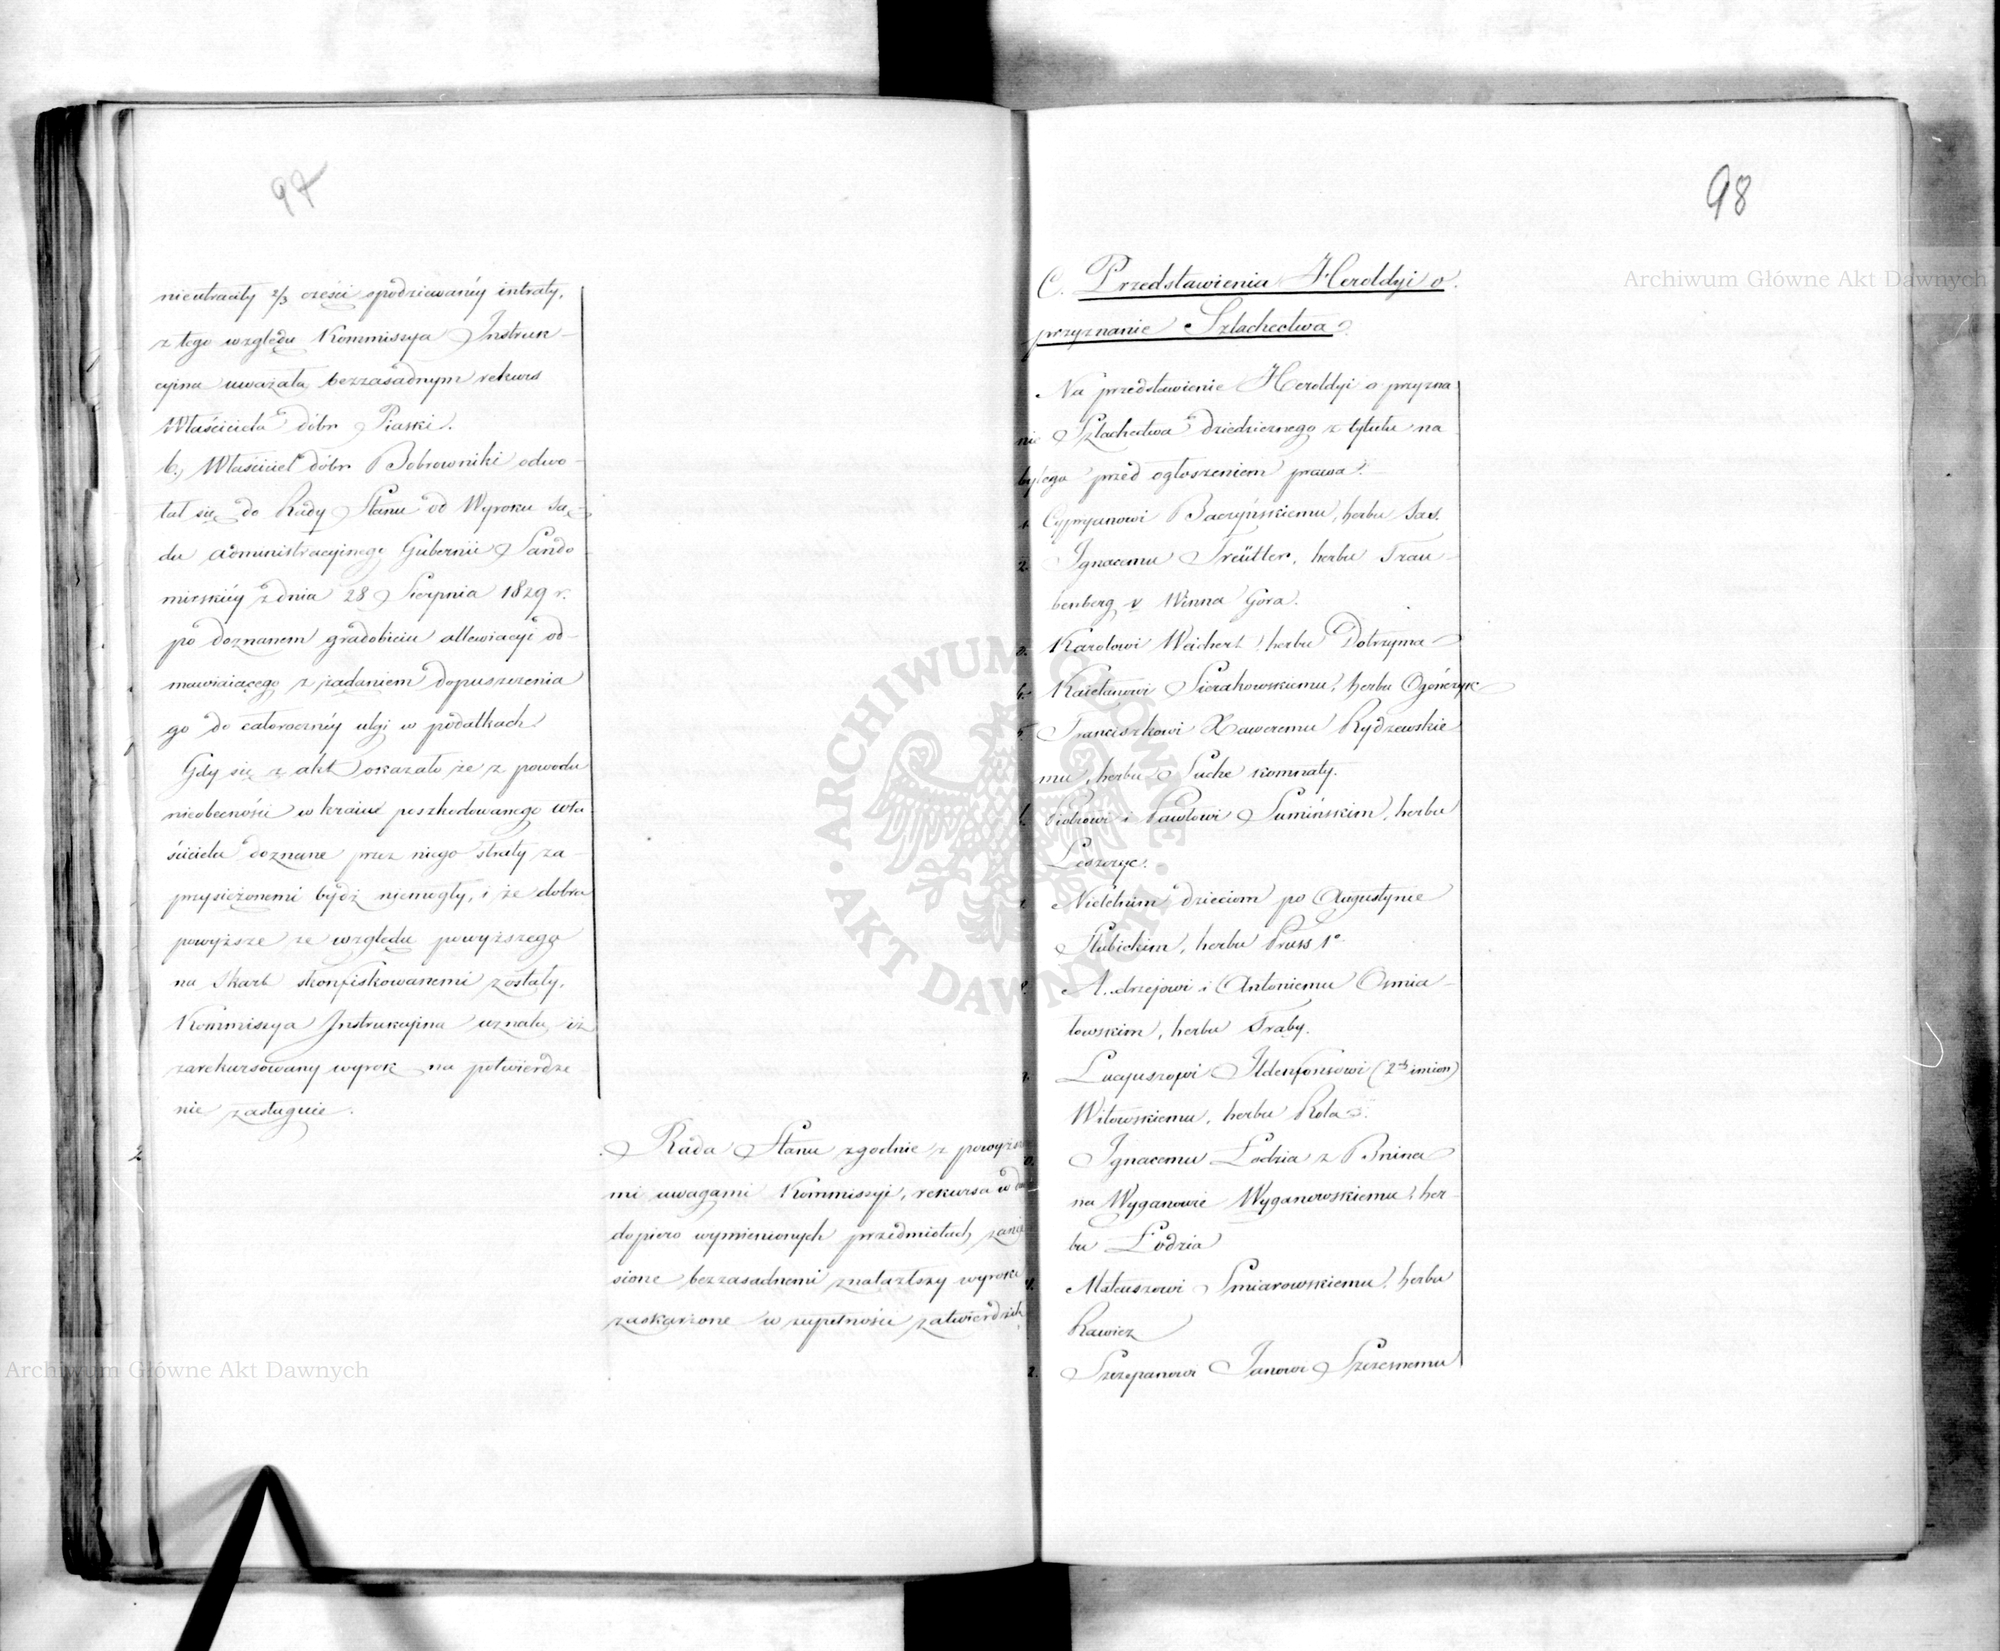 97
nieutraciły 2/3 części spodziewanéy intraty,
z tego względu Kommissya Instruk-
cyina uważała bezzasadnym rekurs
Właściciela dóbr Piaski.
b., Właściciel dóbr Bobrowniki odwo-
łał się do Rady Stanu od Wyroku Są-
du Administracyinego Gubernii Sando-
mirskiéy z dnia 28 Sierpnia 1829 r.
po doznanem gradobiciu allewiacyi od-
mawiaiącego z żądaniem dopuszczenia
go do całorocznéy ulgi w podatkach
Gdy się z akt okazało że z powodu
nieobecności w kraiu poszkodowanego wła-
ściciela doznane przez niego straty za-
przysiężonemi bydź niemogły, i że dobra
powyższe ze względu powyższego
na Skarb skonfiskowanemi zostały,
Kommissya Instrukcyina uznała iż
zarekursowany wyrok na potwierdze
nie zasługuie.
Rada Stanu zgodnie z powyższe
mi uwagami Kommissyi, rekursa w
dopiero wymienionych przedmiotach zanie
sione bezzasadnemi znalazłszy wyroki
zaskarżone w zupełności zatwierdziła
98
C. Przedstawienia Heroldyi o
przyznanie Szlachectwa.
Na przedstawienie Heroldyi o przyzna
nie Szlachectwa dziedzicznego z tytułu na
bytego przed ogłoszeniem prawa.
1. Cypryanowi Baczyńskiemu, herbu Sas.
2. Ignacemu Treütler, herbu Trau-
benberg v Winna Góra.
3. Karolowi Weichert, herbu Dotrzyma
4. Kaietanowi Sierakowskiemu, herbu Ogończyk
5. Franciszkowi Xaweremu Rydzewskie
mu, herbu Suche komnaty.
6. Piotrowi i Pawłowi Sumińskim, herbu
Leszczyc.
Nieletnim dzieciom po Augustynie
Słubickim, herbu Pruss 1o
8. Andrzejowi i Antoniemu Osmia-
łowskim, herbu Traby.
Lucyuszowi Ildenfonsowi (2ch imion)
Witowskiemu, herbu Rola.
Ignacemu Łodzia z Bnina
na Wyganowie Wyganowskiemu, her-
bu Łodzia
Mateuszowi Smiarowskiemu, herbu
Rawicz
2. Szczepanowi Janowi Szczesnemu
Archiwum Główne Akt Dawnych
Archiwum Główne Akt Dawnych
ARCHIWUM GŁÓWNE · AKT DAWNYCH ·